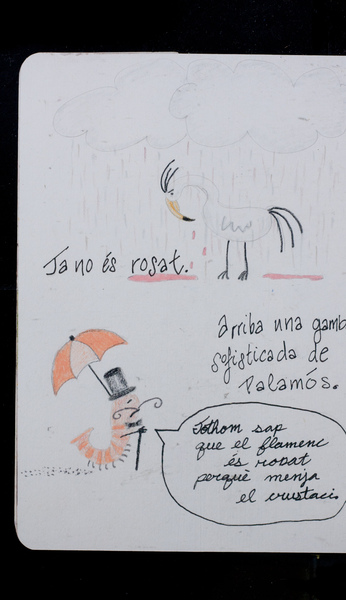 Ja no és rosat.
Arriba una gamb
sofisticada de
Palamós.
Tothom sap
que el flamenc
és rosat
perquè menja
el crustacis